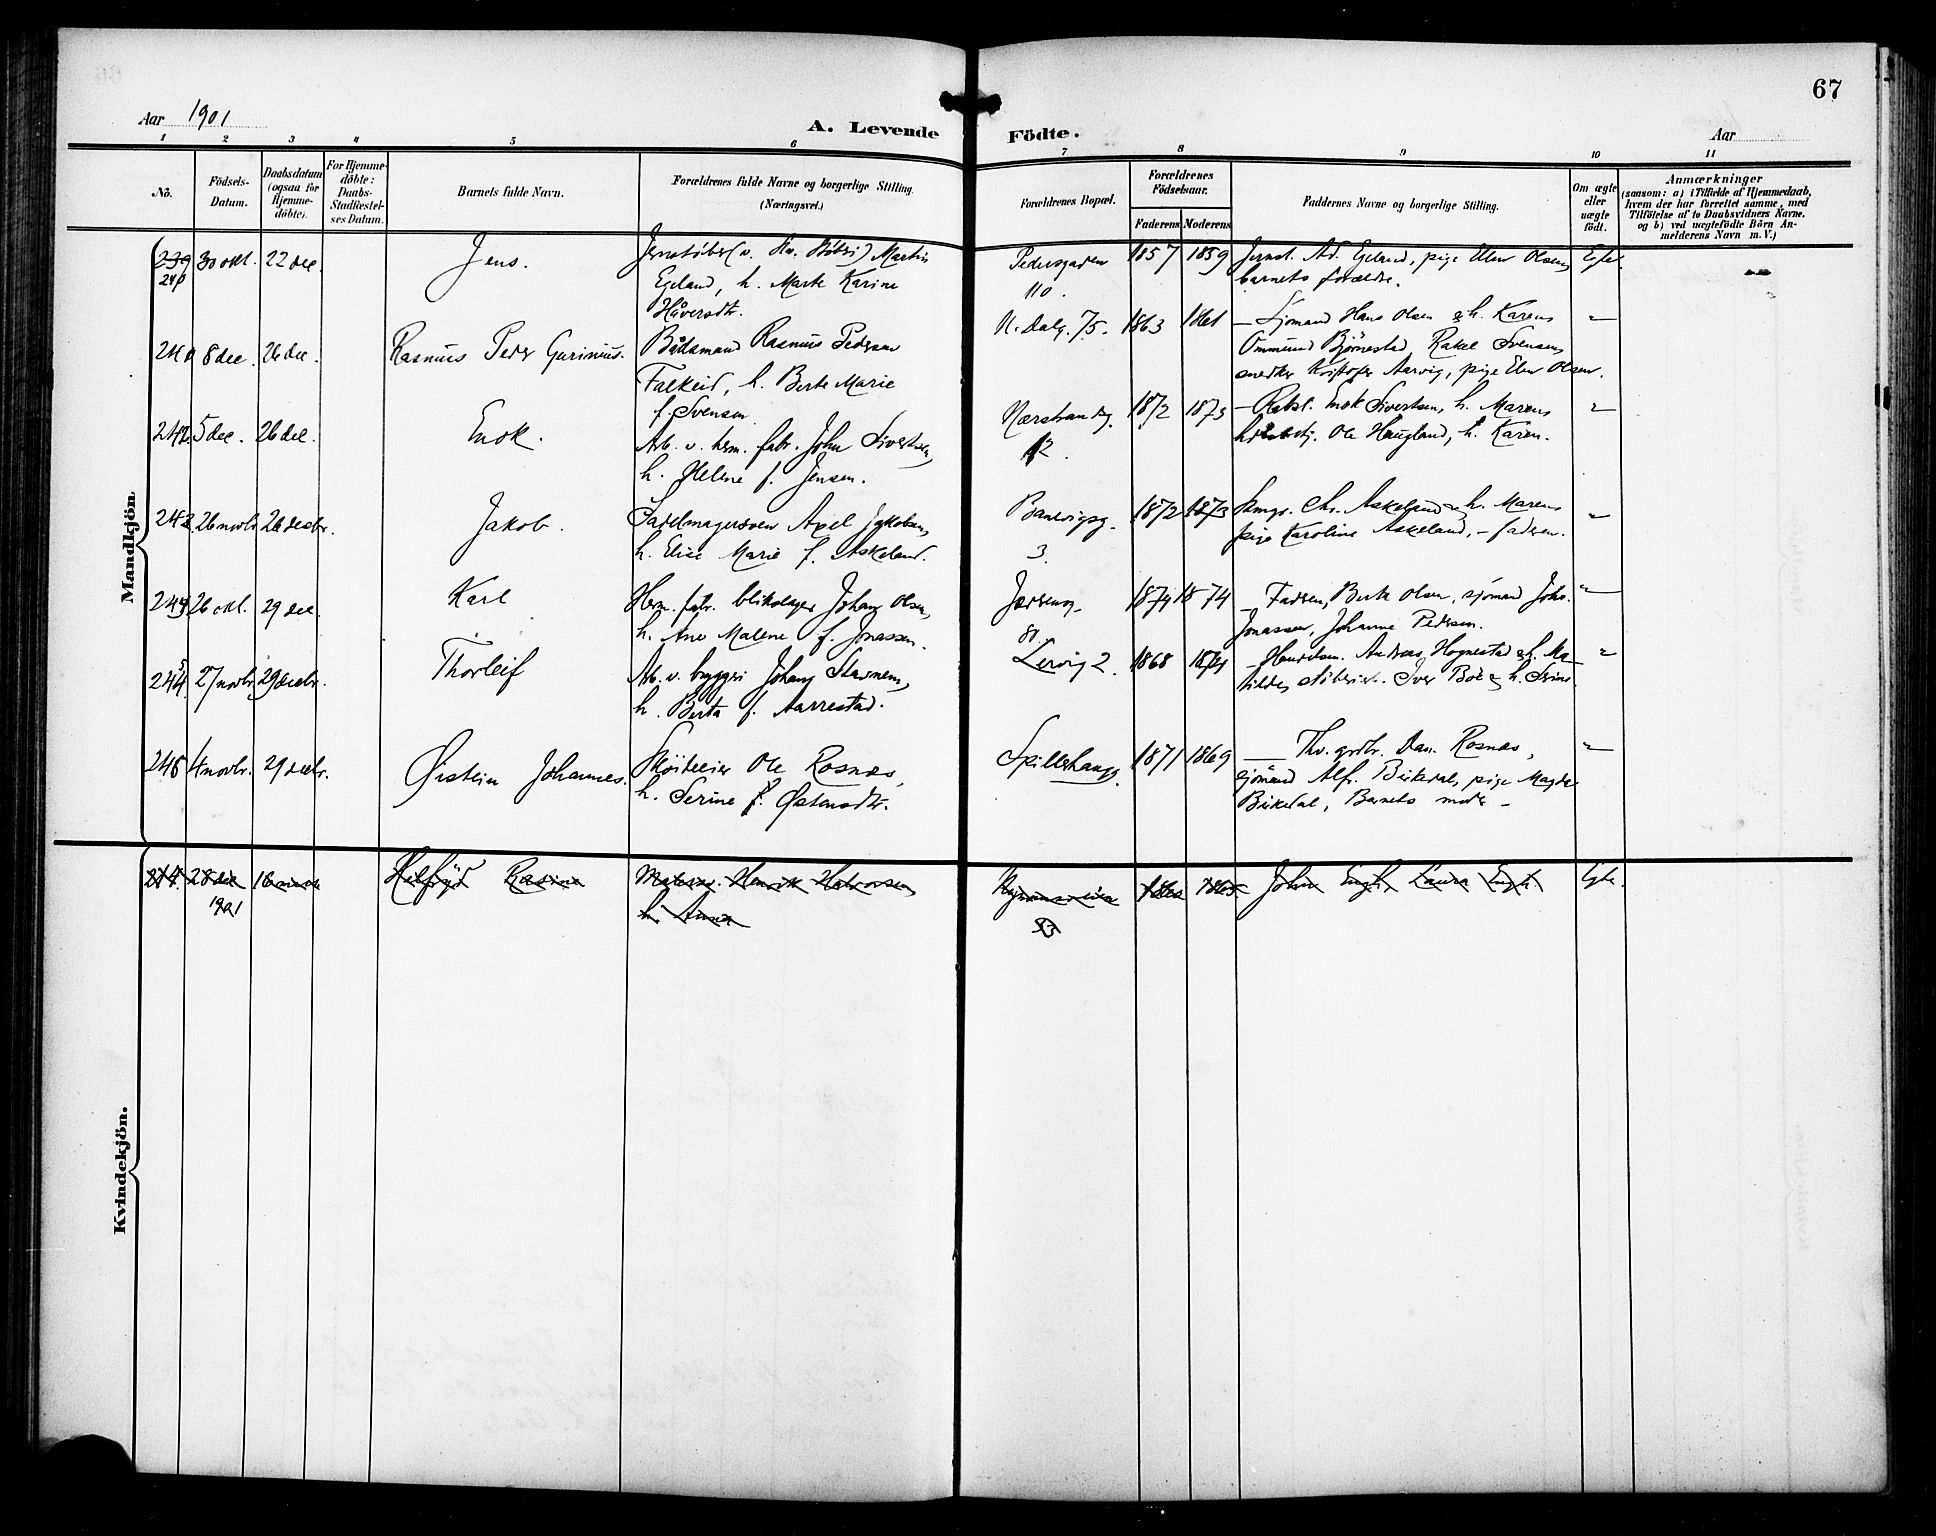 67
Aar 1901
A. Levende Födte.
Aar
1 2 3 4 5 6 7 8 9 10 11
No.
Födsels-
Datum.
Daabsdatum
(ogsaa for
Hjemme-
döbte).
For Hjemme-
döbte:
Daabs-
Stadfæstel-
ses Datum.
Barnets fulde Navn.
Forældrenes fulde Navne og borgerlige Stilling.
(Næringsvei.)
Forældrenes Bopæl.
Forældrenes
Födselsaar.
Faderens Moderens
Faddernes Navne og borgerlige Stilling.
Om ægte
eller
uægte
födt.
Anmærkninger
(saasom: a) i Tilfælde af Hjemmedaab,
hvem der har forrettet samme, med
Tilföielse af to Daabsvidners Navne.
og b) ved uægtefödte Börn An-
melderens Navn m. V.)
Mandkjön.
239
240
30 okt. 22 dec.
Jens.
Martin
Egeland, h. Marte Karine
Håversdtr.
Pedersgaden
110.
1857 1859
Ad. Egeland, pige Elen Olsen,
barnets forældre.
8 dec. 26 dec.
Rasmus Peder Gurinius.
Bådsmand Rasmus Pedersen
Falkeid, h. Berte Marie
f. Svensen
N. Dalg. 75.
1863 1861
Sjömand Hans Olsen & h. Karen,
Ommund Bjørnestad Rakel Svensen,
snedker Kristofer Aarvig, pige Elen Olsen.
242 5 dec. 26 dec.
Enok.
Arb. v. herm. fabr. John Sivertsen,
h. Helene f. Jensen.
12.
1872 1873
Enok Sivertsen, h. Maren,
Ole Haugland, h. Karen.
243 26 novbr. 26 decbr.
Jakob.
Sadelmagersven Axel Jakobsen,
h. Elise Marie f. Askeland.
Banevigsg.
3.
1872 1873
Chr. Askeland & h. Maren,
pige Karoline Askeland, - faderen.
26 okt. 29 dec.
Karl
Herm. fabr. blikslager Johan Olsen,
h. Ane Malene f. Jonassen.
80.
1874 1874
Faderen, Berte Olsen, sjömand Johs.
Jonassen, Johanne Pedersen.
27 novbr. 29 decbr.
Thorleif
Arb. v. bryggeri Johan Stavnem,
h. Berta f. Aarrestad.
Lervig 2.
1868 1874
Andreas Hognestad & h. Ma-
tilde, Iver Bøe & h. Serine.
246 4 novbr. 29 decbr.
Øistein Johannes.
Skøiteeier Ole Rosnæs,
h. Serine f. Østensdtr.
Spilderhaugg.
1871 1869
Thv. grdbr. Dan. Rosnæs,
sjömand Alfr. Birkedal, pige Magda
Birkedal, Barnets moder -
Kvindekjön.
28 dec
1901
Rasine
Henrik Halvorsen
h. Anna
53
1865
John Engh, Laura Engh.
Egte.